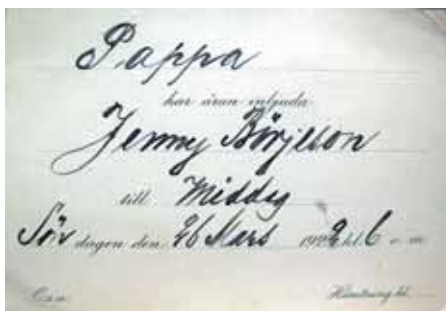 Pappa
har äran inbjuda
Jenny Börjeson
till Middag
Sön dagen den 26 Mars 1922 kl. 6 e. m.
O. s. a.
Hämtning kl.